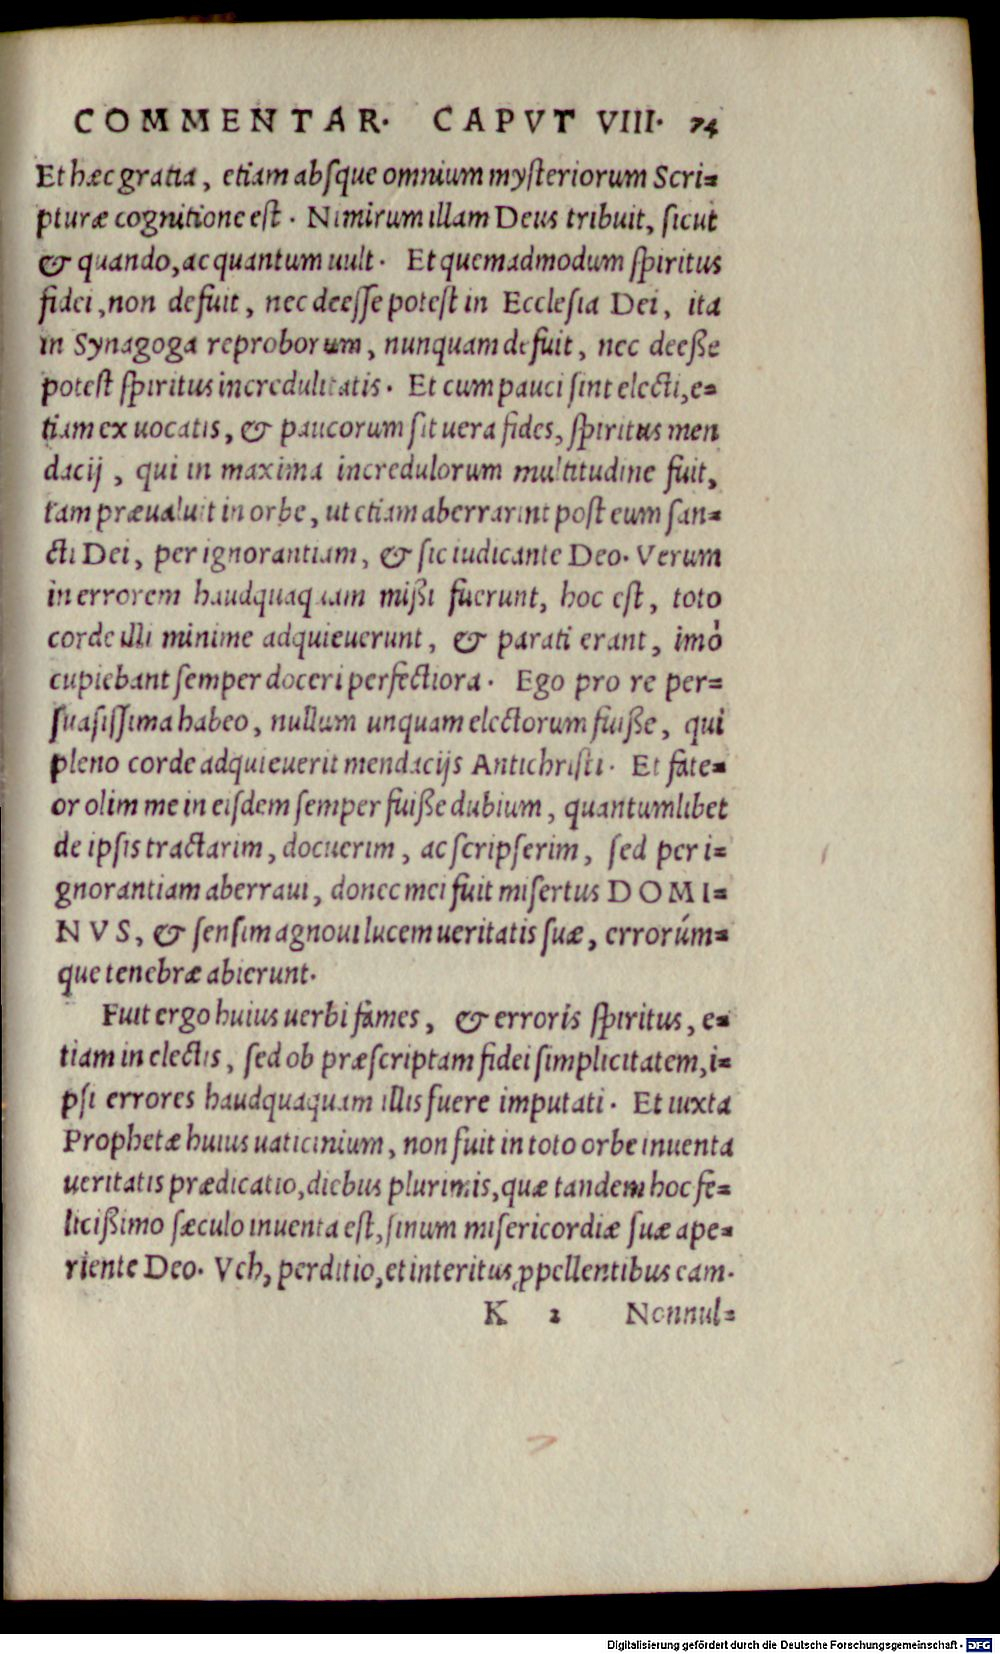 COMMENTAR. CAPVT VIII. 74
Et hæc gratia, etiam absque omnium mysteriorum Scri=
pturæ cognitione est. Nimirum illam Deus tribuit, sicut
& quando, ac quantum uult. Et quemadmodum spiritus
fidei, non defuit, nec deesse potest in Ecclesia Dei, ita
in Synagoga reproborum, nunquam defuit, nec deeße
potest spiritus incredulitatis. Et cum pauci sint electi, e=
tiam ex uocatis, & paucorum sit uera fides, spiritus men
dacij, qui in maxima incredulorum multitudine fuit,
tam præualuit in orbe, ut etiam aberrarint post eum san=
cti Dei, per ignorantiam, & sic iudicante Deo. Verum
in errorem haudquaquam mißi fuerunt, hoc est, toto
corde illi minime adquieuerunt, & parati erant, imò
cupiebant semper doceri perfectiora. Ego pro re per=
suasissima habeo, nullum unquam electorum fuiße, qui
pleno corde adquieuerit mendacijs Antichristi. Et fate=
or olim me in eisdem semper fuiße dubium, quantumlibet
de ipsis tractarim, docuerim, ac scripserim, sed per i=
gnorantiam aberraui, donec mei fuit misertus DOMI=
NVS, & sensim agnoui lucem ueritatis suæ, errorúm=
que tenebræ abierunt.
Fuit ergo huius uerbi fames, & erroris spiritus, e=
tiam in electis, sed ob præscriptam fidei simplicitatem, i=
psi errores haudquaquam illis fuere imputati. Et iuxta
Prophetæ huius uaticinium, non fuit in toto orbe inuenta
ueritatis prædicatio, diebus plurimis, quæ tandem hoc fe=
licißimo sæculo inuenta est, sinum misericordiæ suæ ape=
riente Deo. Veh, perditio, et interitus ꝓpellentibus eam.
K 2 Nonnul=
Digitalisierung gefördert durch die Deutsche Forschungsgemeinschaft - DFG